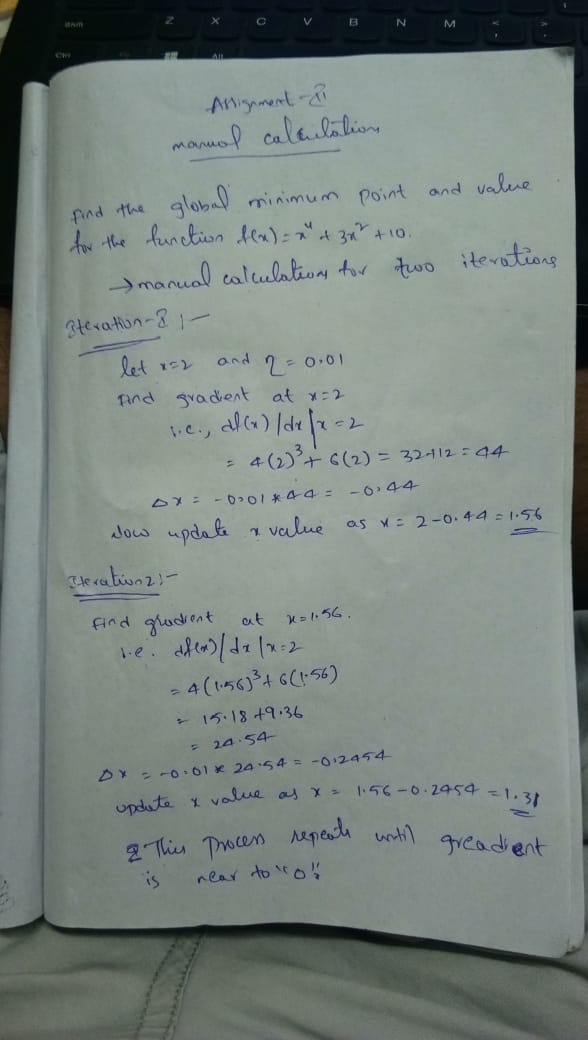 Z X C V B N M
Alt
Assignment - II
manual calculation
find the global minimum point and value
for the function f(x) = x⁴ + 3x² + 10.
→ manual calculations for two iterations
Iteration-I :-
let x=2 and η = 0.01
find gradient at x=2
i.e., df(x)/dx|x=2
= 4(2)³ + 6(2) = 32+12 = 44
Δx = -0.01*44 = -0.44
Now update x value as x = 2-0.44 = 1.56
Iteration 2 :-
find gradient at x=1.56.
i.e. df(x)/dx|x=2
= 4(1.56)³ + 6(1.56)
= 15.18 + 9.36
= 24.54
Δx = -0.01 * 24.54 = -0.2454
update x value as x = 1.56 - 0.2454 = 1.31
This process repeats until greadient
is near to "0".